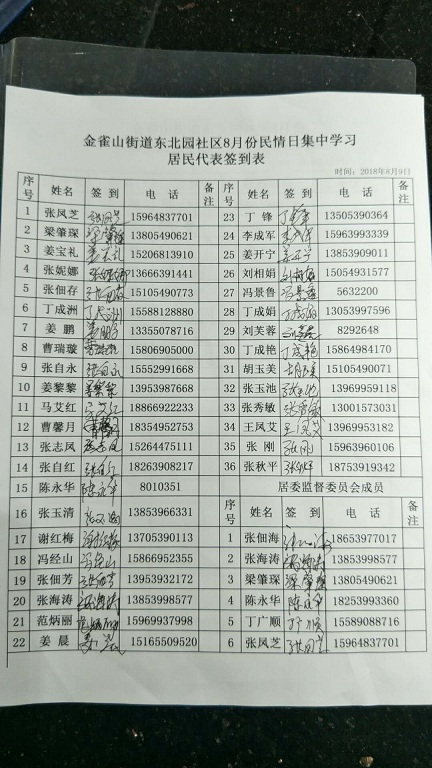 金雀山街道东北园社区8月份民情日集中学习
居民代表签到表
时间：2018年8月9日
序号 姓名 签到 电话 备注 序号 姓名 签到 电话 备注
1 张凤芝 张凤芝 15964837701 23 丁锋 丁锋 13505390364
2 梁肇琛 梁肇琛 13805490621 24 李成军 李成军 15963993339
3 姜宝礼 姜宝礼 15206813910 25 姜开宁 姜开宁 13853909011
4 张妮娜 张妮娜 13666391441 26 刘相娟 刘相娟 15054931577
5 张佃存 张佃存 15105490773 27 冯景鲁 冯景鲁 5632200
6 丁成洲 丁成洲 15588128880 28 丁成娟 丁成娟 13053997596
7 姜鹏 姜鹏 13355078716 29 刘芙蓉 8292648
8 曹瑞璇 15806905000 30 丁成艳 丁成艳 15864984170
9 张自永 张自永 15552991668 31 胡玉美 胡玉美 15105490071
10 姜黎黎 姜黎黎 13953987668 32 张玉池 张玉池 13969959118
11 马艾红 马艾红 18866922233 33 张秀敏 张秀敏 13001573031
12 曹馨月 18354952753 34 王凤艾 王凤艾 13969953182
13 张志凤 15264475111 35 张刚 张刚 15963960106
14 张自红 张自红 18263908217 36 张秋平 张秋平 18753919342
15 陈永华 陈永华 8010351 居委监督委员会成员
16 张玉清 张玉清 13853966331 序号 姓名 签到 电话 备注
17 谢红梅 谢红梅 13705390113 1 张佃海 18653977017
18 冯经山 冯经山 15866952355 2 张海涛 张海涛 13853998577
19 张佃芳 张佃芳 13953932172 3 梁肇琛 梁肇琛 13805490621
20 张海涛 张海涛 13853998577 4 陈永华 陈永华 18253993360
21 范炳丽 范炳丽 15969937998 5 丁广顺 丁广顺 15589088716
22 姜晨 姜晨 15165509520 6 张凤芝 张凤芝 15964837701